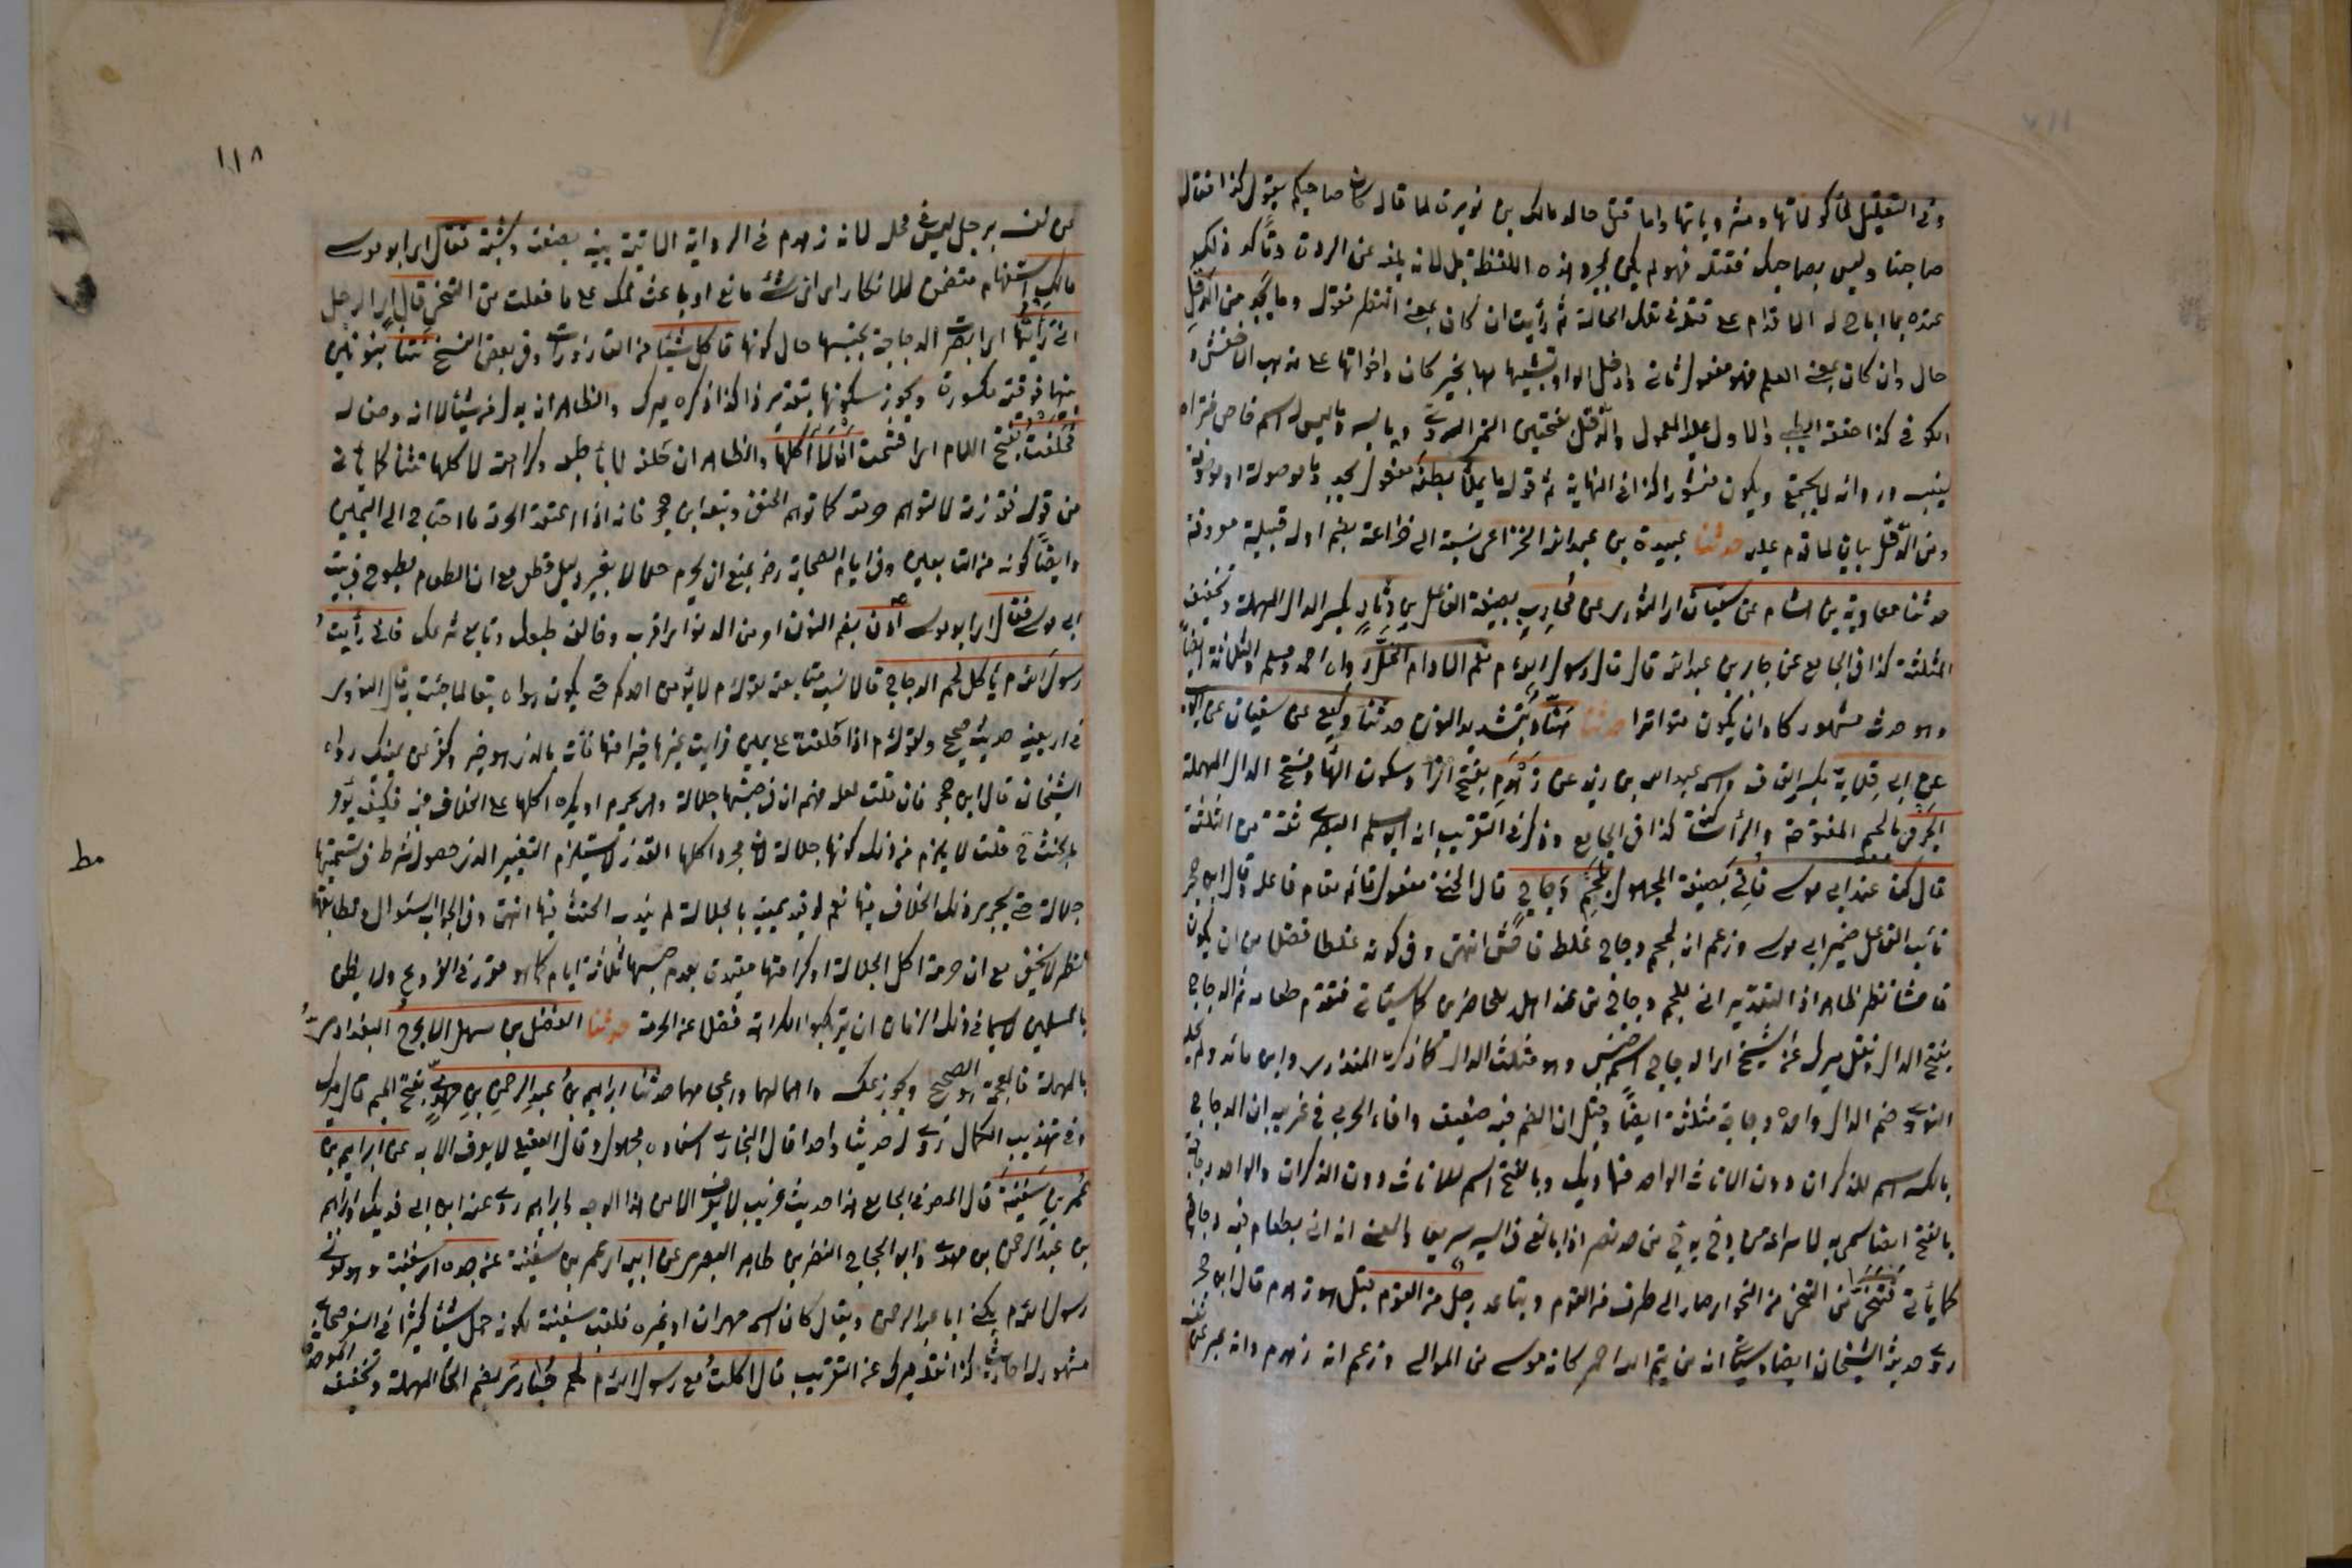 وفى التقليل لمأكولاتها ومشروباتها واما قتل خالد مالك بن نويرة لما قال كان صاحبكم يقول كذا فقال
صاحبنا وليس بصاحبك فقتله فهو لم يكن لمجرد هذه اللفظة بل لانه بلغه عن الردة وتأكد ذلك
عنده بما اباح له الاقدام على قتله فى تلك الحالة ثم رأيت ان كان بمعنى النظر فقوله وما يجد من الدقل
حال وان كان بمعنى العلم فهو مفعول ثان وادخل الواو تشبيها لها بخبر كان واخواتها على مذهب الاخفش و
الكوفى كذا حققه الطيبى والاول عليه المعول والدقل بفتحتين التمر الردى ويابسه وما ليس له اسم خاص فتراه
ليبسه ورداءته لا يجتمع ويكون منثورا كذا فى النهاية ثم قوله ما يملأ بطنه مفعول يجد وما موصولة او موصوفة
ومن الدقل بيان لما قدم عليه حدثنا عبدة بن عبد الله الخزاعى نسبة الى خزاعة بضم اوله قبيلة معروفة
حدثنا معاوية بن هشام عن سفيان اى الثورى عن محارب بصيغة الفاعل بن دثار بكسر الدال المهملة وتخفيف
المثلثة كذا فى الجامع عن جابر بن عبد الله قال قال رسول الله عم نعم الادام الخل رواه احمد ومسلم والثلاثة ايضا
وهو حديث مشهور كاد ان يكون متواترا حدثنا هناد بتشديد النون حدثنا وكيع عن سفيان عن ايوب
عن ابى قلابة بكسر القاف واسمه عبد الله بن زيد عن زهدم بفتح الزا وسكون الها وفتح الدال المهملة
الجرمى بالجيم المفتوحة والرأ ساكنة كذا فى الجامع وذكر فى التقريب انه ابو مسلم البصرى ثقة من الثالثة
قال كنا عند ابى موسى فاتى بصيغة المجهول بلحم دجاج قال الحنفى مفعول قائم مقام فاعله وقال ابن حجر
نائب الفاعل ضمير ابى موسى وزعم انه لحم دجاج غلط فاحش انتهى وفى كونه غلطا فضلا من ان يكون
فاحشا نظر ظاهر اذ التقدير اتى بلحم دجاج من عند اهله للحاضرين كما سيأتى فتقدم طعامه ثم الدجاج
بفتح الدال ونقل ميرك عن الشيخ ان الدجاج اسم جنس وهو مثلث الدال كما ذكره المنذرى وابن مالك ولم يحك
النووى ضم الدال واحده دجاجة مثلثة ايضا وقيل ان الضم فيه ضعيف وافاد الحربى فى غريبه ان الدجاج
بالكسر اسم للذكران دون الاناث الواحد منها ديك وبالفتح اسم للاناث دون الذكران والواحد دجاجة
بالفتح ايضا سمى به لاسراعه من دج يدج من حد نصر اذا بالغ فى السير سريعا والمعنى انه اتى بطعام فيه دجاج
كما يأتى فتنحى من التنحى من النحو اى صار الى طرف من القوم وتباعد رجل من القوم قيل هو زهدم قال ابن حجر
روى حديثه الشيخان ايضا وسيأتى انه من تيم الله احمر كانه مولى من الموالى وزعم انه زهدم وانه عبر عن
١١٨
عن نفسه برجل ليس فى محله لان زهدم فى الرواية الاتية بينه بصفته ونسبه فقال اى ابو موسى
مالك استفهام متضمن للانكار اى اى شئ مانع او باعث لك على ما فعلت من التنحى قال اى الرجل
انى رأيتها اى ابصرت الدجاجة بجنسها حال كونها تأكل شيئا من القاذورات وفى بعض النسخ نتنا بنونين
بينهما فوقية مكسورة ويجوز سكونها بتقدير ذا كذا ذكره ميرك والظاهر انه بدل من شيئا لا انه وصف له
فحلفت بفتح اللام اى اقسمت ان لا آكلها والظاهر ان حلفه لما طبعه وكراهته لاكلها نتنا كما يأتى
من قوله فقذرته لا لتوهم حرمته كما توهم الحنفى وتبعه ابن حجر فانه اذا اعتقد الحرمة ما احتاج الى اليمين
وايضا كونه من التابعين وفى ايام الصحابة رضى يمنع ان يحرم حلالا بغير دليل قطعى مع ان الطعام مطبوخ فى بيت
ابى موسى فقال اى ابو موسى ادن بضم النون امر من الدنو اى اقرب وخالف طبعك وتابع شرعك فانى رأيت
رسول الله عم يأكل لحم الدجاج قال انسب متابعته لقوله عم لا يؤمن احدكم حتى يكون هواه تبعا لما جئت به قال النووى
فى اربعينه حديث صحيح ولقوله عم اذا حلفت على يمين فرأيت غيرها خيرا منها فأت بالذى هو خير وكفر عن يمينك رواه
الشيخان قال ابن حجر فان قلت لعله فهم ان فى جنسها جلالة وهى يحرم او يكره اكلها على الخلاف فيه فكيف يؤمر
بالحنث قلت لا يلزم من ذلك كونها جلالة لان مجرد اكلها القذر لا يستلزم التغير الذى حصوله شرط فى تسميتها
جلالة حتى يجرى ذلك الخلاف فيها نعم لو قيد يمينه بالجلالة لم يندب الحنث فيها انتهى وفى الجواب والسؤال ومطابقتها
نظر لا يخفى مع ان حرمة اكل الجلالة او كراهتها مقيدة بعدم حبسها ثلاثة ايام كما هو مقرر فى الفروع ولا يظن
بالمسلمين لا سيما فى ذلك الزمان ان يرتكبوا الكراهة فضلا عن الحرمة حدثنا الفضل بن سهل الاعرج البغدادى
بالمهملة فالمعجمة هو الصحيح ويجوز عكسه واهمالهما واعجامهما حدثنا ابراهيم بن عبد الرحمن بن مهدى بفتح الميم قال ميرك
وفى تهذيب الكمال روى له حديثا واحدا قال البخارى اسناده مجهول وقال العقيلى لا يعرف الا به عن ابراهيم بن
عمر بن سفينة قال المصنف فى الجامع هذا حديث غريب لا نعرفه الا من هذا الوجه وابراهيم روى عنه ابن ابى فديك وابراهيم
بن عبد الرحمن بن مهدى وابو الحجاج النضر بن طاهر البصرى عن ابيه اى عمر بن سفينة عن جده اى سفينة وهو مولى
رسول الله عم يكنى ابا عبد الرحمن ويقال كان اسمه مهران او غيره فلقب سفينة لكونه حمل شيئا كثيرا فى السفر صحابى
مشهور له احاديث كذا نقله ميرك عن التقريب قال اكلت مع رسول الله عم لحم حبارى بضم الحا المهملة وتخفيف الموحدة
مط